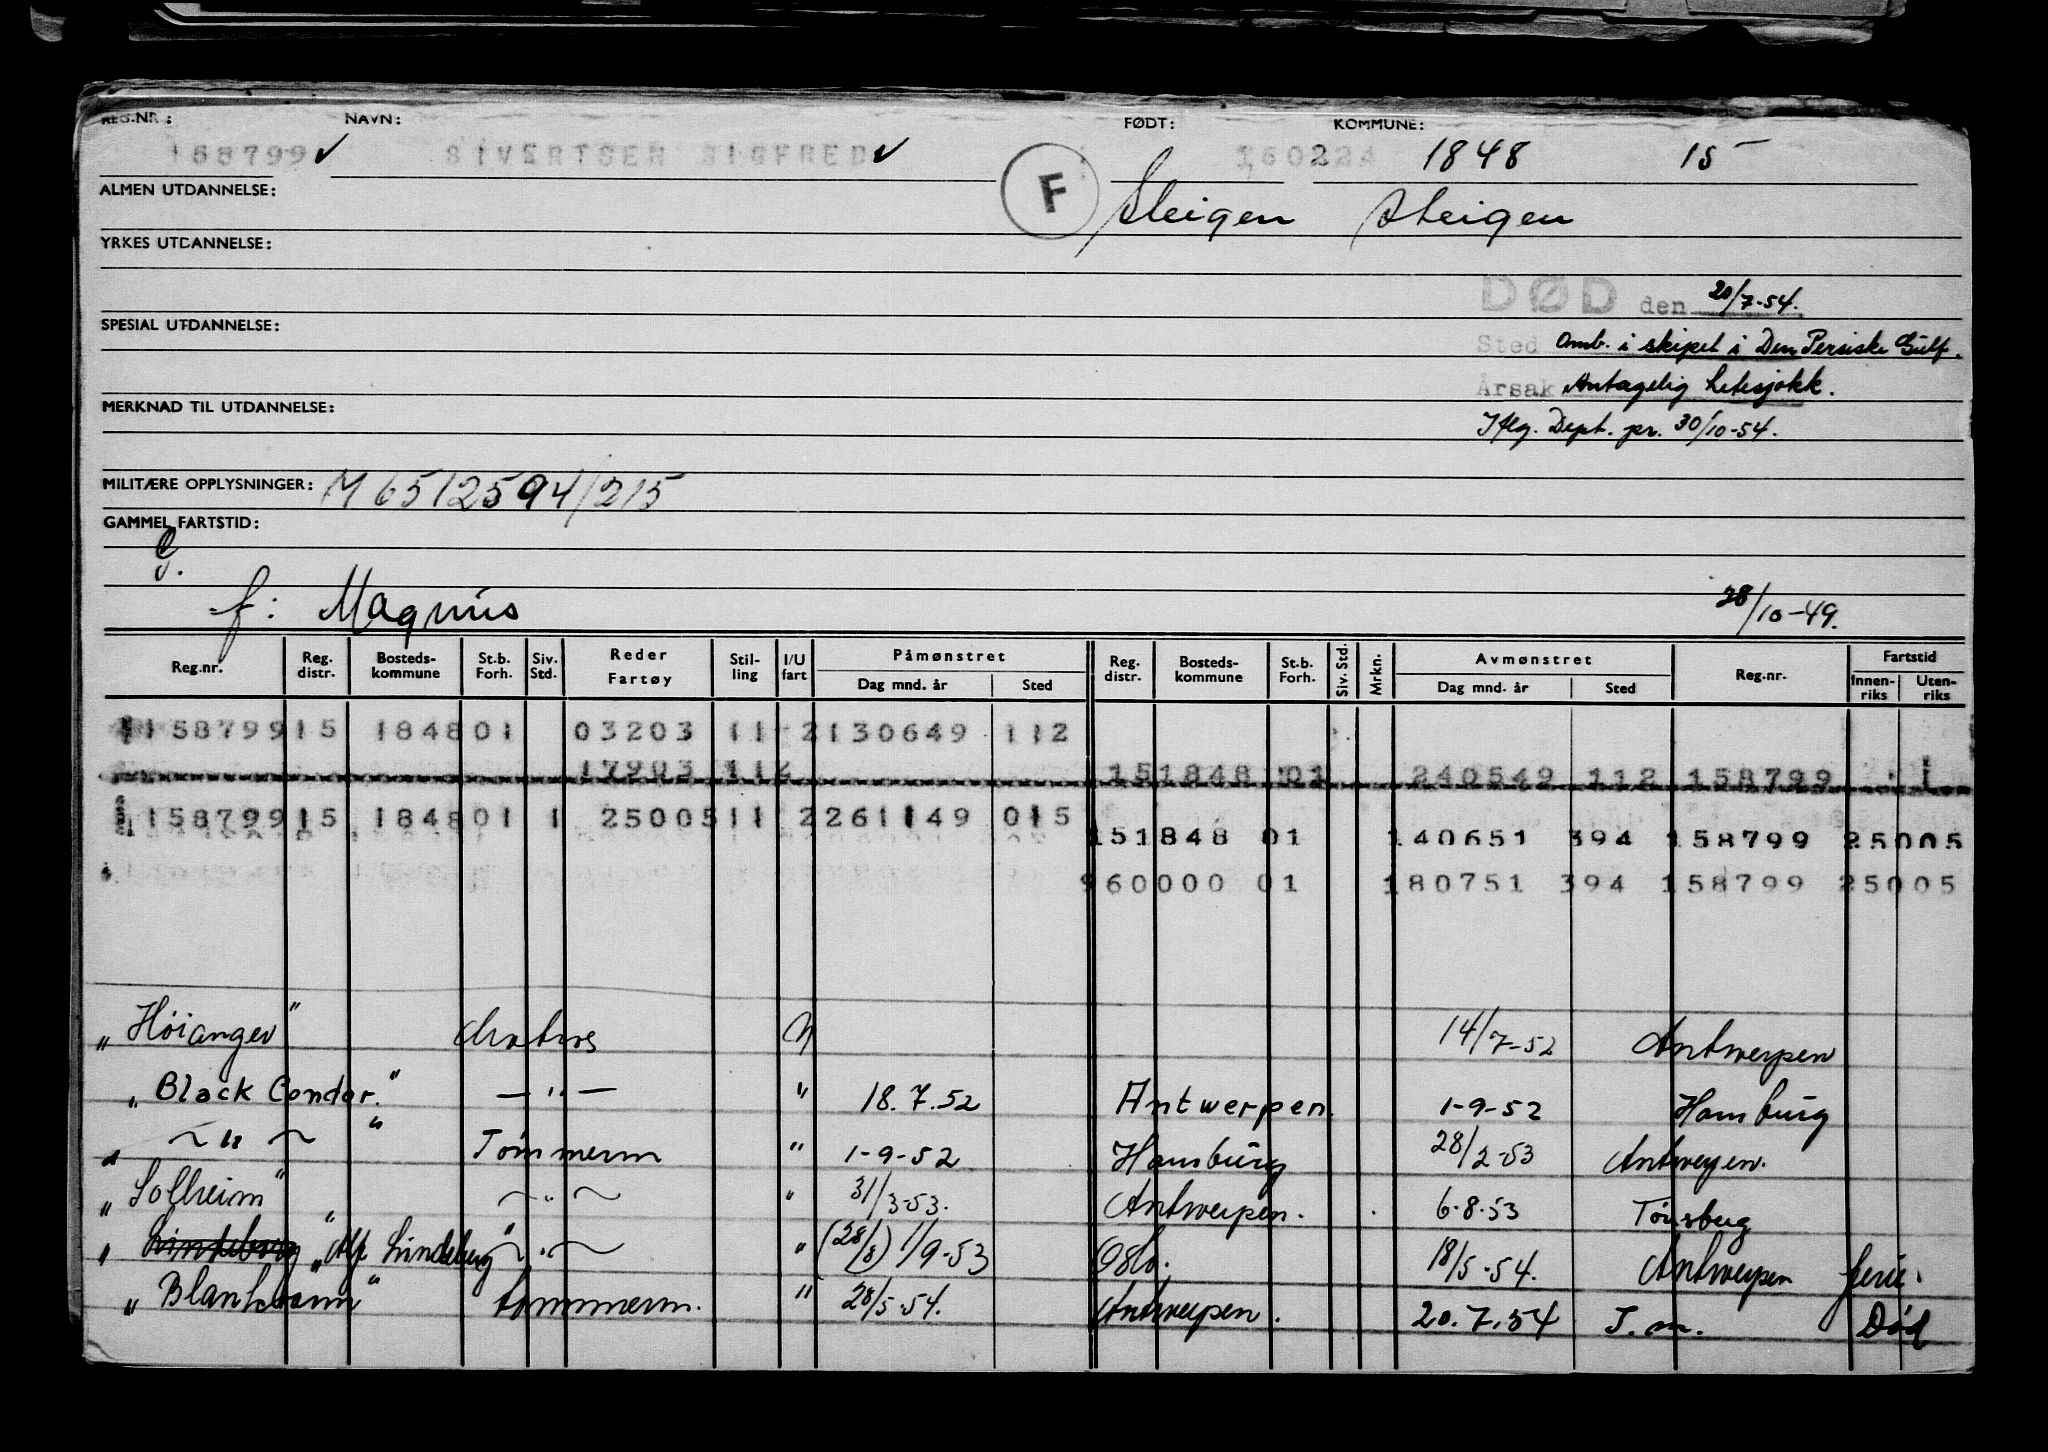 REG.NR: NAVN: FØDT: KOMMUNE:
158799 ✓ SIVERTSEN SIGFRED ✓ 160224 1848 15
F
ALMEN UTDANNELSE: Steigen Steigen
YRKES UTDANNELSE:
DØD den 20/7-54.
SPESIAL UTDANNELSE:
Sted Omb. i skipet i Den Persiske Gulf.
Årsak Antagelig hetesjokk.
MERKNAD TIL UTDANNELSE:
Iflg. Dept. pr. 30/10-54.
MILITÆRE OPPLYSNINGER: M 6512594/215
GAMMEL FARTSTID:
f: Magnus 28/10-49.
Reg.nr. Reg. distr. Bosteds-kommune St.b. Forh. Siv. Std. Reder Fartøy Stil-ling I/U fart Påmønstret Dag mnd. år Sted Reg. distr. Bosteds-kommune St.b. Forh. Siv. Std. Mrkn. Avmønstret Dag mnd. år Sted Reg.nr. Fartstid Innen-riks Uten-riks
158799 15 1848 01 03203 11 2 130649 112
17903 112 151848 01 240549 112 158799 1
158799 15 1848 01 1 25005 11 2 261149 015
151848 01 140651 394 158799 25005
960000 01 180751 394 158799 25005
"Höianger" Matros U 14/7-52 Antwerpen
"Black Condor." — " — " 18.7.52 Antwerpen. 1-9-52 Hamburg
" ~ " ~ " Tømmerm " 1-9-52 Hamburg 28/2-53 Antwerpen.
"Solheim" ~ " ~ " 31/3-53. Antwerpen. 6.8.53 Tønsberg
" Lindeborg "Alf Lindeberg" ~ " ~ " (28/8) 1/9-53 Oslo. 18/5-54. Antwerpen ferie.
"Blankvann" tømmerm. " 28/5-54. Antwerpen. 20.7.54 T.m. Død